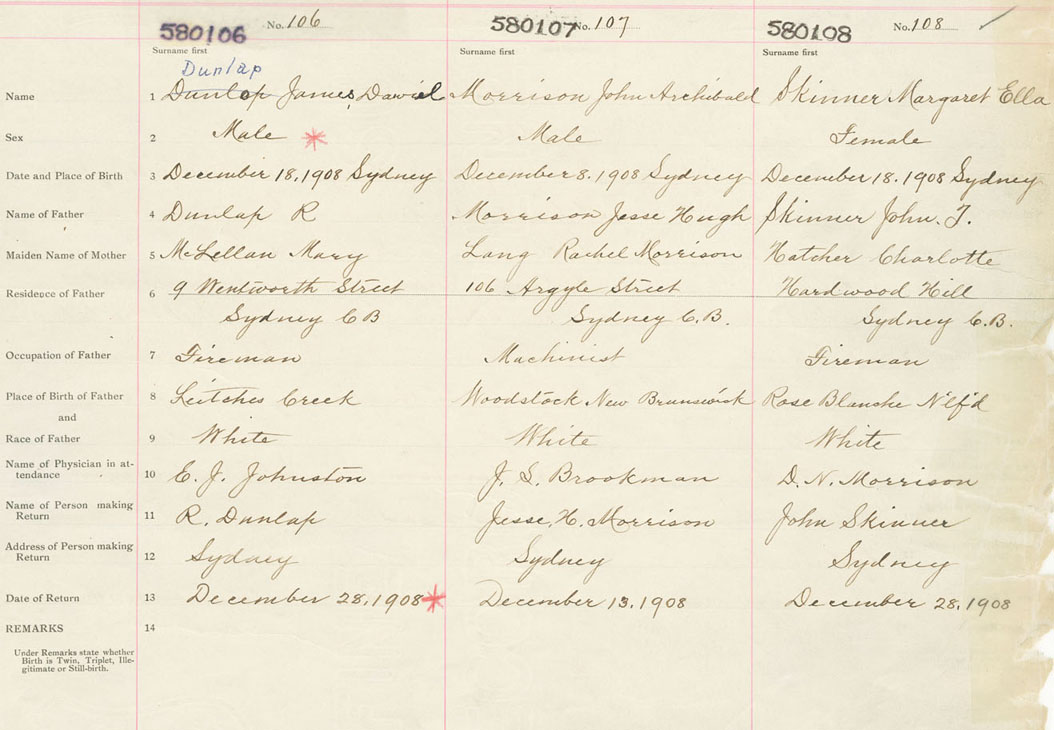 580106 No. 106 580107 No. 107 580108 No. 108
Surname first Surname first Surname first
Dunlap
Name 1 Dunlop James, Daniel Morrison John Archibald Skinner Margaret Ella
Sex 2 Male Male Female
Date and Place of Birth 3 December 18, 1908 Sydney December 8, 1908 Sydney December 18, 1908 Sydney
Name of Father 4 Dunlap R Morrison Jesse Hugh Skinner John. T.
Maiden Name of Mother 5 McLellan Mary Lang Rachel Morrison Hatcher Charlotte
Residence of Father 6 9 Wentworth Street 106 Argyle Street Hardwood Hill
Sydney C B Sydney C.B. Sydney C.B.
Occupation of Father 7 Fireman Machinist Fireman
Place of Birth of Father 8 Leitches Creek Woodstock New Brunswick Rose Blanche N'lf'd
and
Race of Father 9 White White White
Name of Physician in at-
tendance 10 E. J. Johnston J. S. Brookman D. N. Morrison
Name of Person making
Return 11 R. Dunlap Jesse, H. Morrison John Skinner
Address of Person making
Return 12 Sydney Sydney Sydney
Date of Return 13 December 28, 1908 December 13, 1908 December 28, 1908
REMARKS 14
Under Remarks state whether
Birth is Twin, Triplet, Ille-
gitimate or Still-birth.